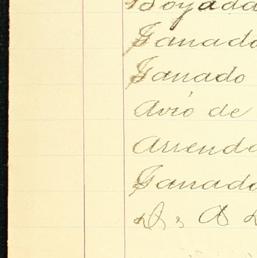 Boyada
Ganado
Ganado
Avio de
Arrenda
Ganado
D. A